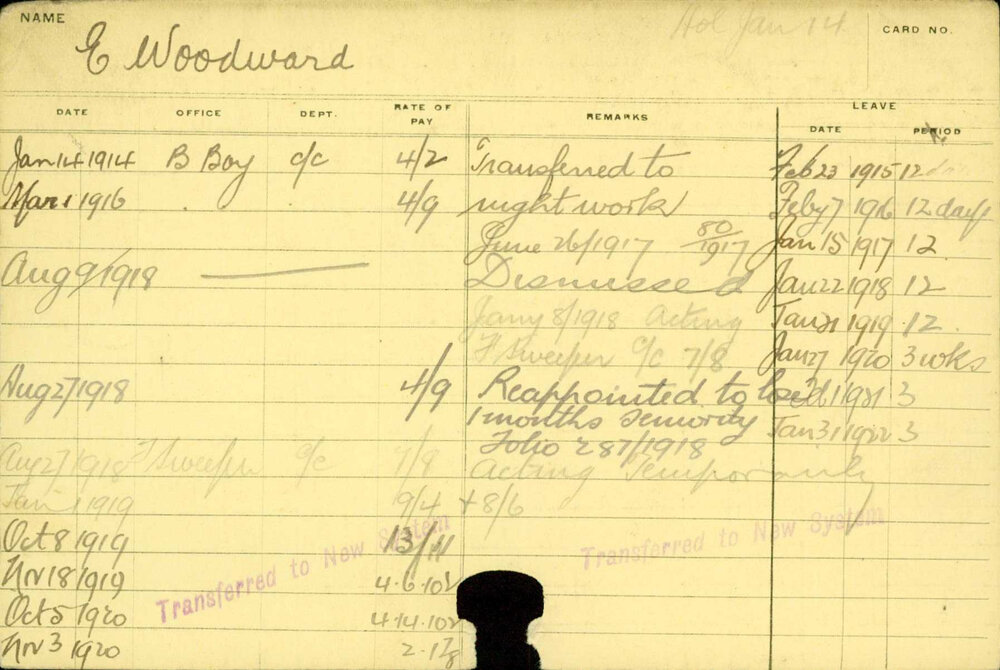 NAME
E Woodward
Hol Jan 14
CARD NO.
DATE OFFICE DEPT. RATE OF PAY REMARKS LEAVE
DATE PERIOD
Jan 14 1914 B Boy c/c 4/2 Transferred to Feb 23 1915 12
Mar 1 1916 4/9 night work Feby 7 1916 12 days
June 26/1917 80/1917 Jan 15 1917 12
Aug 9/1918 Dismissed Jan 22 1918 12
Jany 8/1918 Acting Jan 21 1919 12
F Sweeper c/c 7/8 Jan 27 1920 3 wks
Aug 27 1918 4/9 Reappointed to 1 1921 3
1 months seniority Jan 31 1922 3
Folio 287/1918
Aug 27 1918 F Sweeper c/c 7/8 Acting Temporarily
Jan 1 1919 9/4 + 8/6
Oct 8 1919 13/11
Transferred to New System
Transferred to New System
Nov 18 1919 4.6.10½
Oct 5 1920 4.14.10½
Nov 3 1920